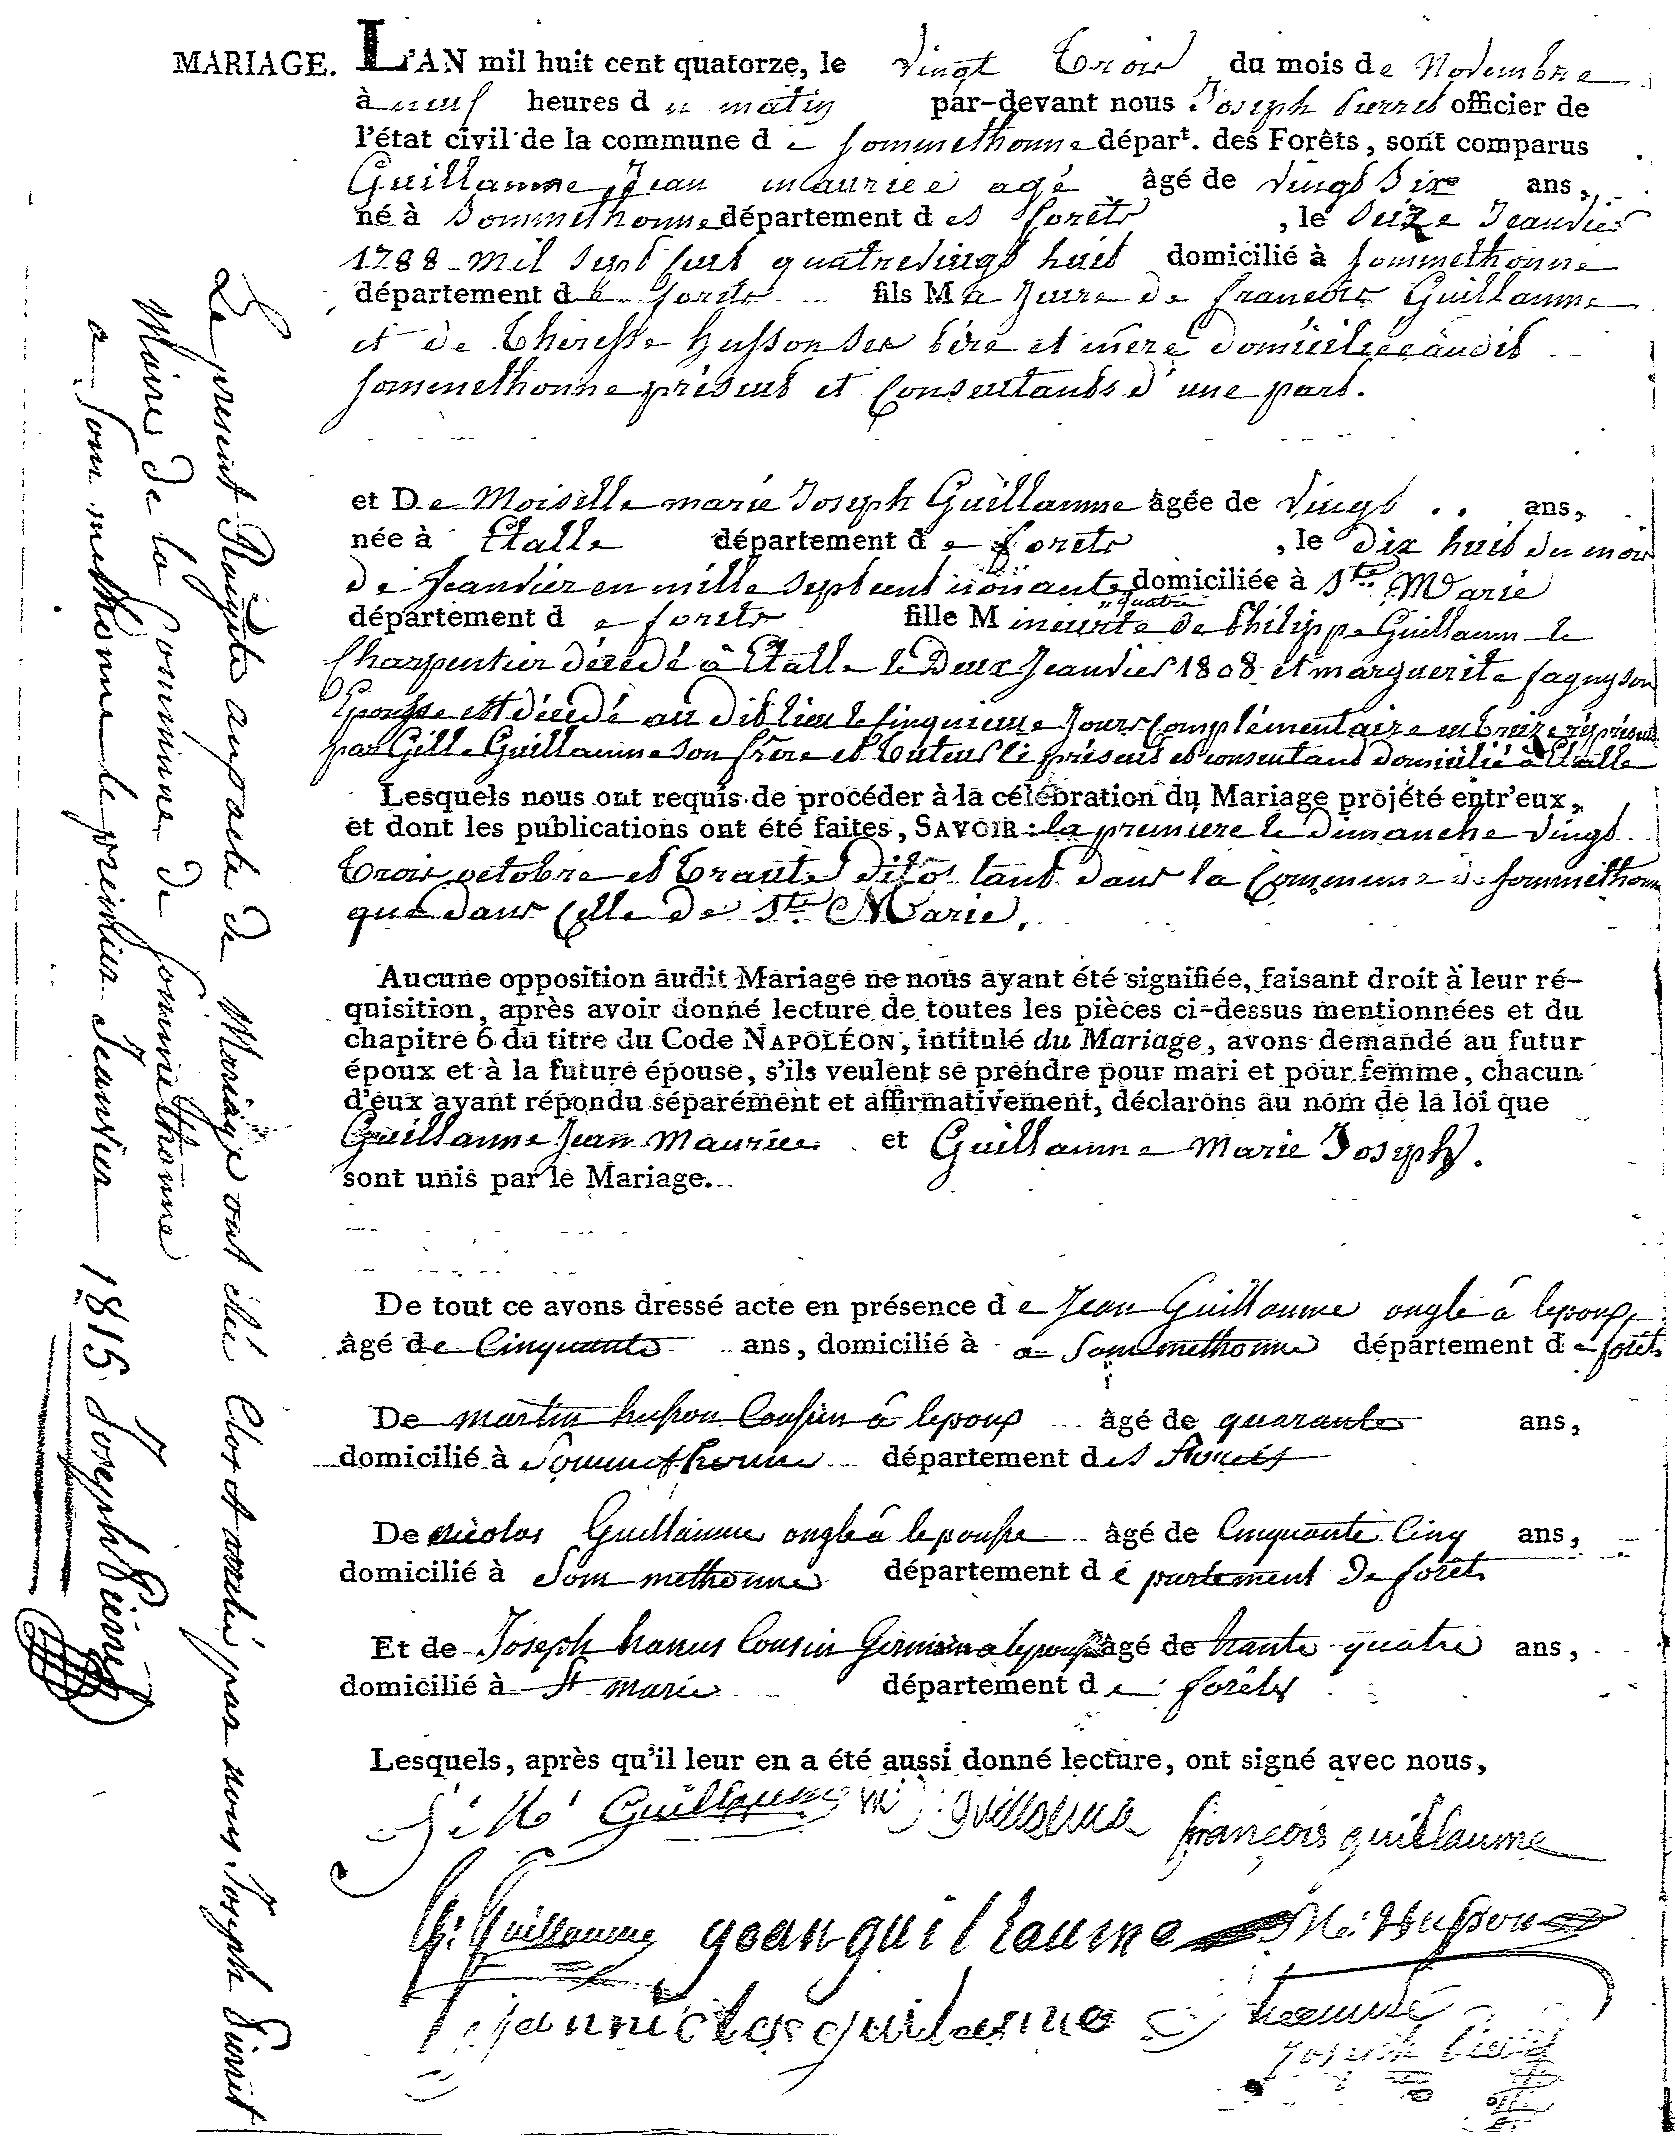 MARIAGE. L'AN mil huit cent quatorze, le vingt trois du mois de Novembre
à neuf heures du matin par-devant nous Joseph Pierret officier de
l'état civil de la commune de Sommethonne dépar<sup>t</sup>. des Forêts, sont comparus
Guillaume Jean maurice agé âgé de vingt Six ans,
né à Sommethonne département des forêts, le Seize Jeanvier
1788 mil sept cent quatrevingt huit domicilié à Sommethonne
département de forêts fils de francois Guillaume
et de Theresse husson ses père et mère domiciliée audit
Sommethonne présent et Consentants d'une part.
et De Moiselle marie Joseph Guillaume âgée de vingt .. ans,
née à Etalle département de forêts, le dix huit du mois
de Jeanvier en mille sept cent nonante quatre domiciliée à Ste Marie
département de forêts fille Mineurte de Philippe Guillaume le
Charpentier décédé à Etalle le Deux Jeanvier 1808 et marguerite fagny son
Epousse est décédé au dit lieu le Cinquieme Jours Complémentaire en treize répresenté
par Gille Guillaume son frère et tuteur ci présent et consentant domicilié à Etalle
Lesquels nous ont requis de procéder à la célébration du Mariage projété entr'eux,
et dont les publications ont été faites, SAVOIR : la premiere le dimanche vingt
trois octobre et trante dito tant dans la Commune de Sommethonne
que dans Celle de Ste Marie.
Aucune opposition audit Mariage ne nous ayant été signifiée, faisant droit à leur ré-
quisition, après avoir donné lecture de toutes les pièces ci-dessus mentionnées et du
chapitre 6 du titre du Code NAPOLÉON, intitulé du Mariage, avons demandé au futur
époux et à la future épouse, s'ils veulent se prendre pour mari et pour femme, chacun
d'eux ayant répondu séparément et affirmativement, déclarons au nom de la loi que
Guillaume Jean Maurice et Guillaume Marie Joseph.
sont unis par le Mariage.
De tout ce avons dressé acte en présence de Jean Guillaume ongle à lepoux
âgé de Cinquante ans, domicilié à a Sommethonne département de forêts
De martin husson Cousin à lepoux âgé de quarante ans,
domicilié à Sommethonne département des forêts
De nicolas Guillaume ongle à lepouse âgé de Cinquante Cinq ans,
domicilié à Sommethonne département de partement De forêts
Et de Joseph hanus Cousin Germain a lepoux âgé de trante quatre ans,
domicilié à St marie département de forêts
Lesquels, après qu'il leur en a été aussi donné lecture, ont signé avec nous,
J: M: Guillaume M J guillaume françois guillaume
G: Guillaume jean guillaume M: Husson
jean nicolas guillaume J hanus
Joseph Pierret
Le present Registre aux acte de Mariage ont été Clos et arreté par nous Joseph Pierret
Maire de la Commune de Sommethonne
a Sommethonne le premier Jeanvier 1815 Joseph Pierret